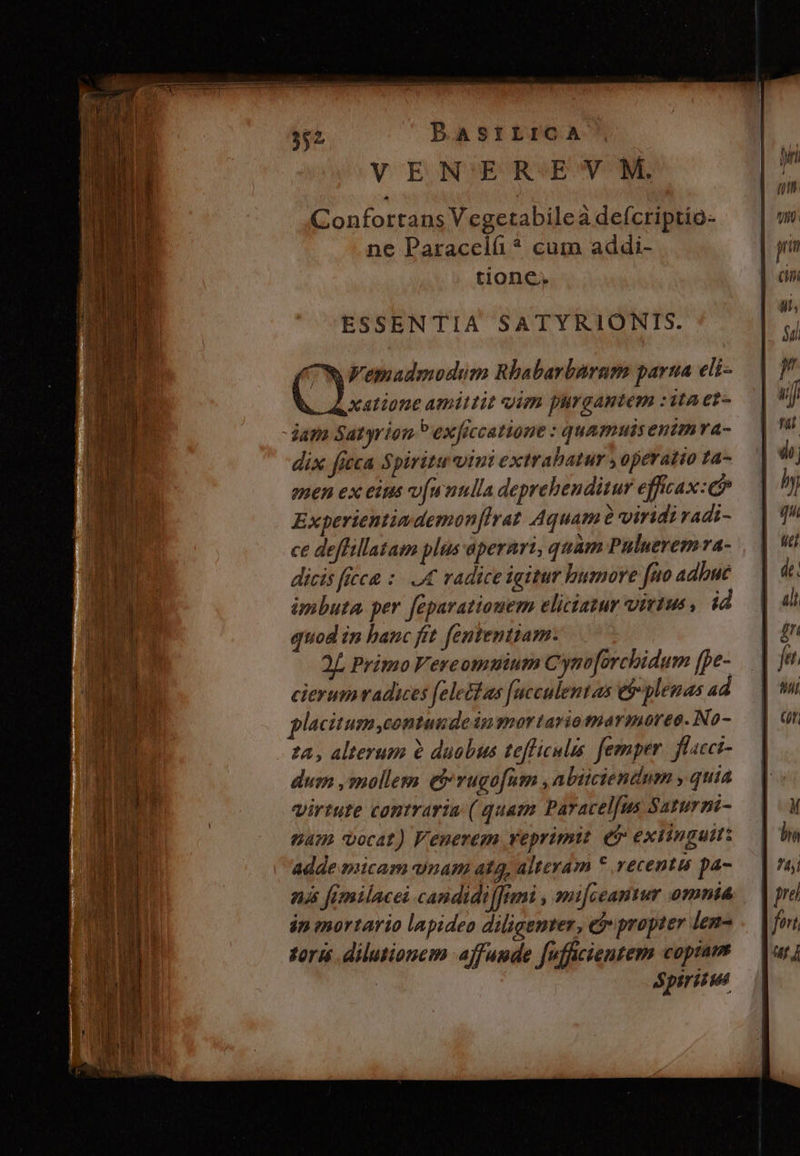 352 BASILICA
VENEREVM.
Confortans Vegetabile à deſcriptio-
ne Paracelſi ᵃ cum addi-
tione.
ESSENTIA SATYRIONIS.
QVemadmodum Rhabarbarum parua eli-
xatione amittit vim purgantem: ita et-
iam Satyrion ᵇ exſiccatione: quamuis enim ra-
dix ſicca Spiritu vini extrahatur, operatio ta-
men ex eius vſu nulla deprehenditur efficax: &
Experientia demonſtrat Aquam è viridi radi-
ce deſtillatam plus operari, quàm Puluerem ra-
dicis ſiccæ: A radice igitur humore ſuo adhuc
imbuta per ſeparationem eliciatur virtus, id
quod in hanc fit ſententiam.
♃. Primo Vere omnium Cynoſorchidum ſpe-
cierum radices ſelectas ſucculentas & plenas ad
placitum, contunde in mortario marmoreo. No-
ta, alterum è duobus teſticulis ſemper flacci-
dum, mollem & rugoſum, abiiciendum, quia
virtute contraria (quam Paracelſus Saturni-
nam vocat) Venerem reprimit & extinguit:
adde micam vnam atq; alteram ᶜ recentis pa-
nis ſimilacei candidiſſimi, miſceantur omnia
in mortario lapideo diligenter, & propter len-
toris dilutionem affunde ſufficientem copiam
Spiritus